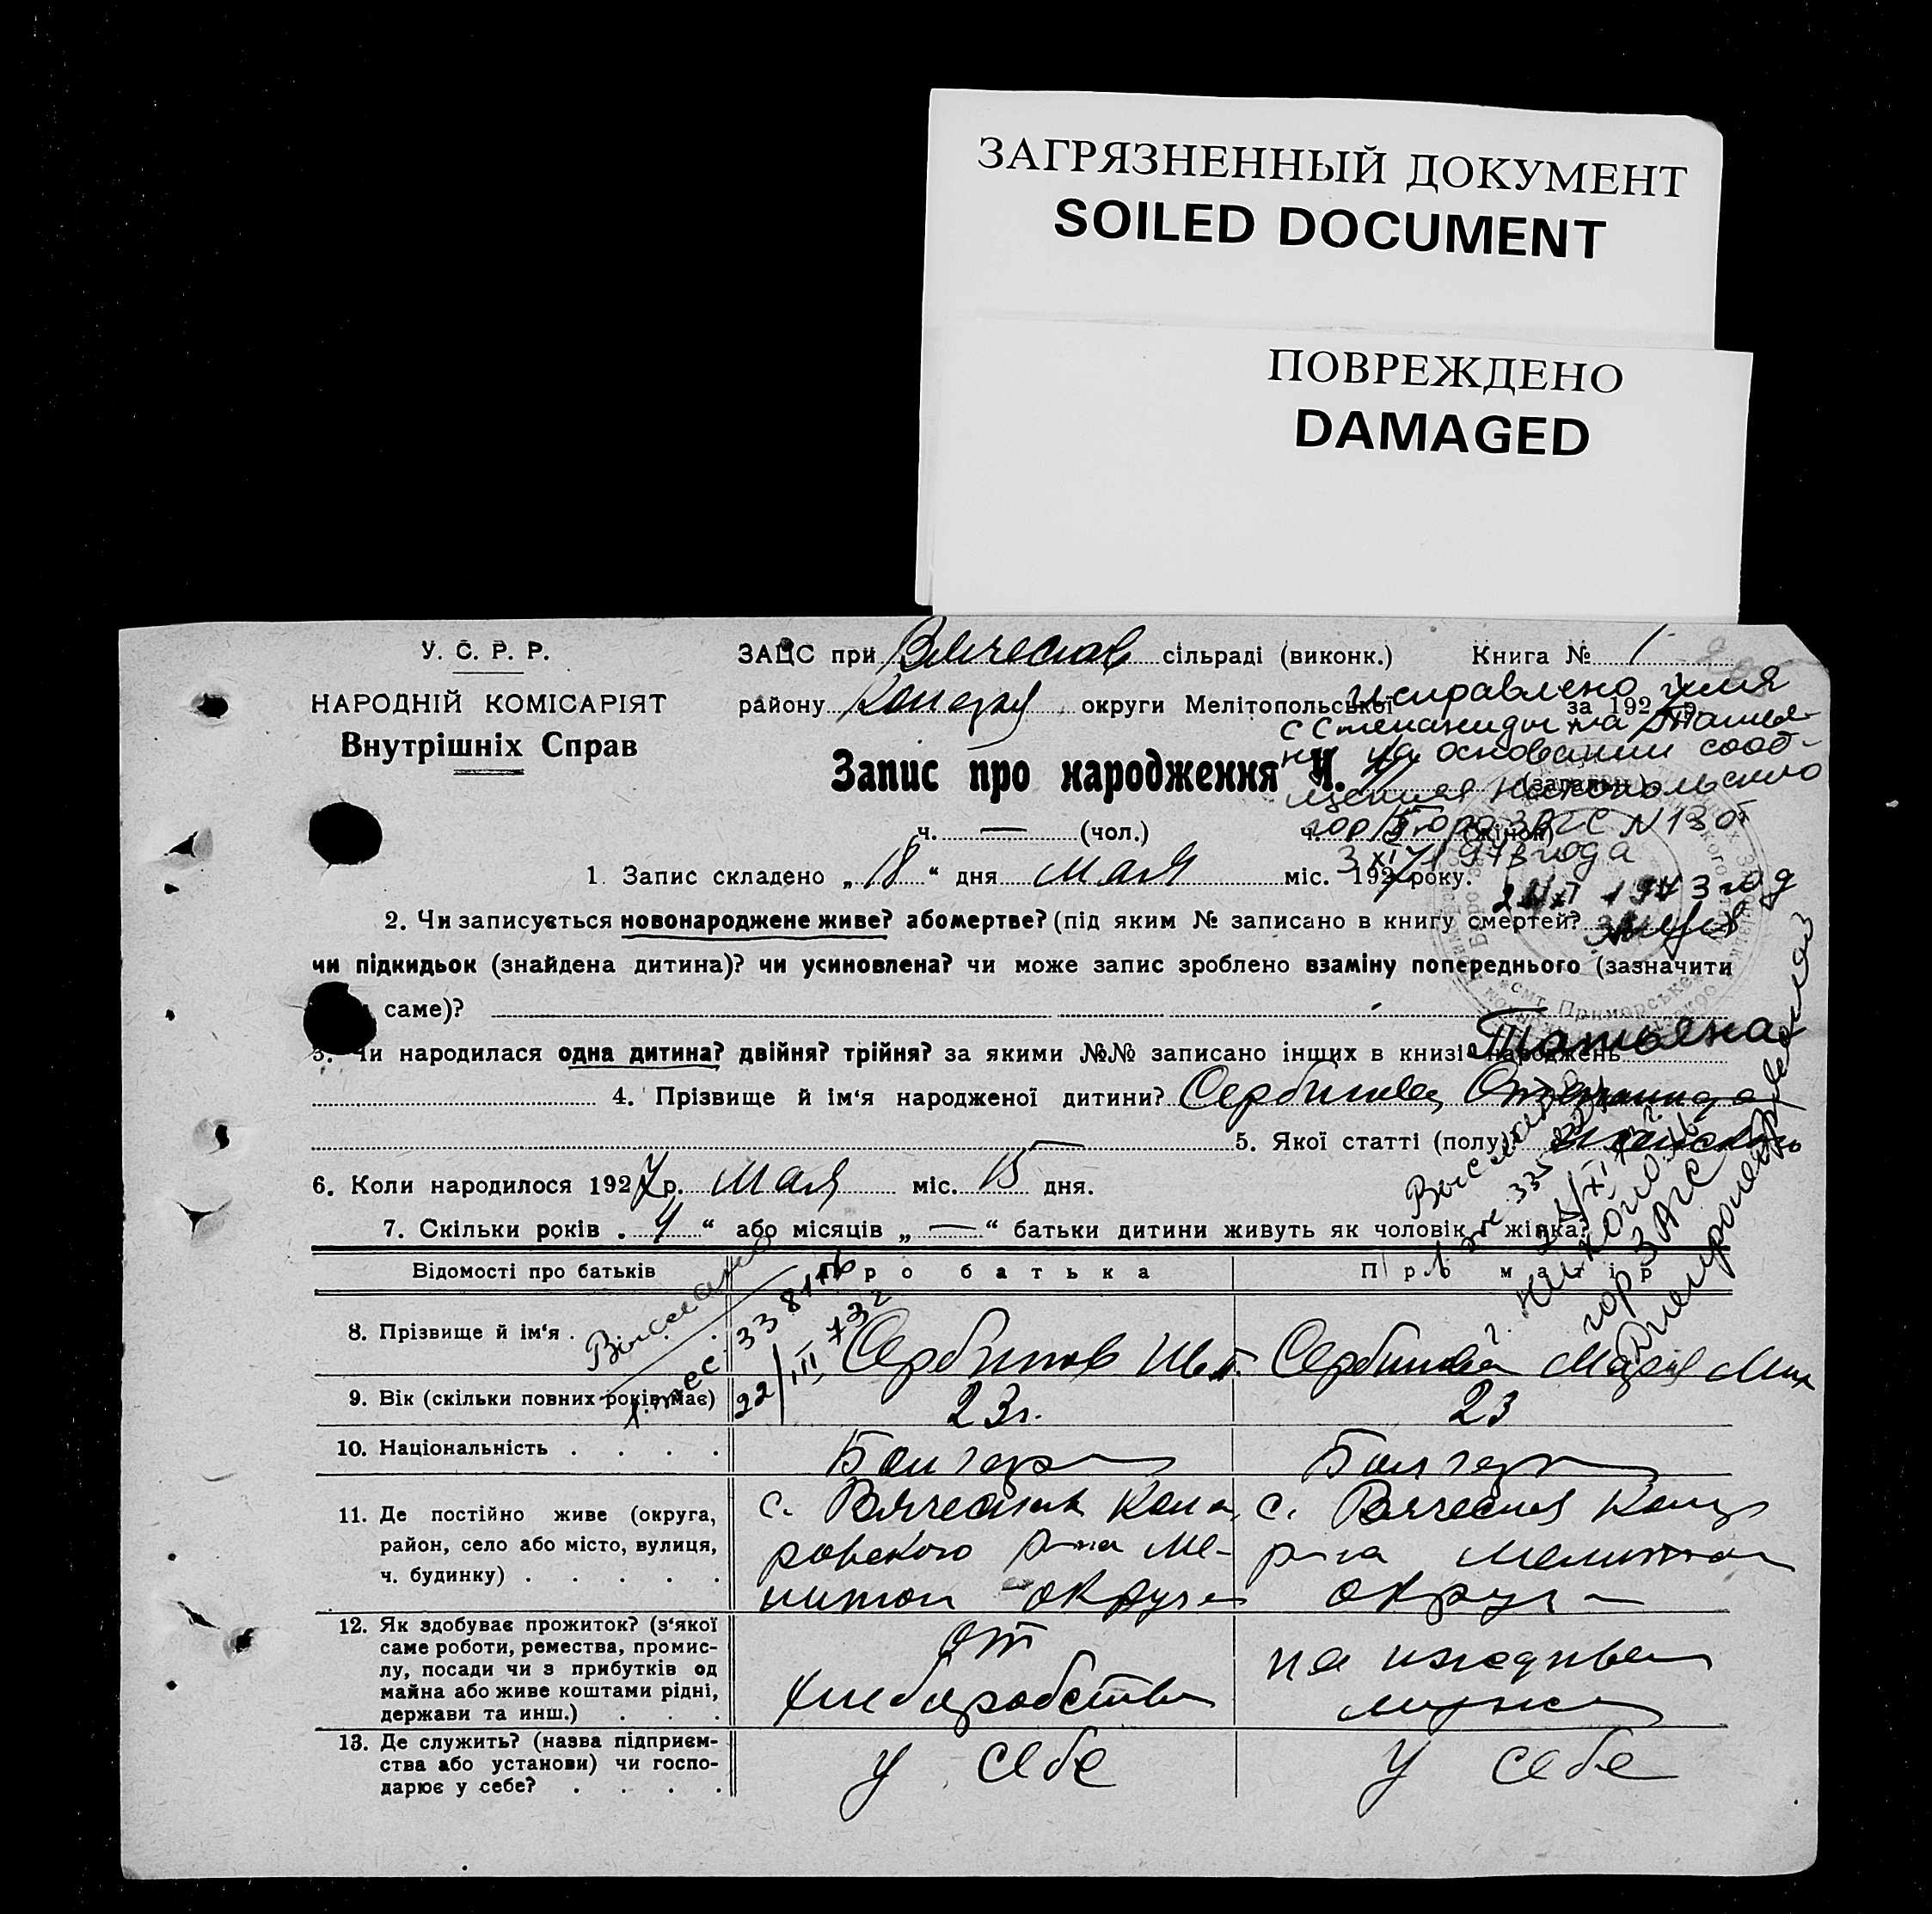 ЗАГРЯЗНЕННЫЙ ДОКУМЕНТ
SOILED DOCUMENT
ПОВРЕЖДЕНО
DAMAGED
У. С. Р. Р.
НАРОДНІЙ КОМІСАРІЯТ
Внутрішніх Справ
ЗАЦС при Вячеслав сільраді (виконк.) Книга № 1
району округи Мелітопольської за 1927 р.
исправлено имя
с Степаниды на Татья-
ну на основании сооб-
щения Никопольского
гор бюро ЗАГС N 13 от
3/XI 1973 года
2 XII 1973 год
Запис про народження Ч. (загальн.)
ч. — (чол.) ч. (жінок)
1. Запис складено „18“ дня Мая міс. 1927 року.
2. Чи записується новонароджене живе? або мертве? (під яким № записано в книгу смертей?
чи підкидьок (знайдена дитина)? чи усиновлена? чи може запис зроблено взаміну попереднього (зазначити
саме)?
Татьяна
3. Чи народилася одна дитина? двійня? трійня? за якими №№ записано інших в книзі народжень
4. Прізвище й ім‘я народженої дитини? Сербинова, Степанида
5. Якої статті (полу)? женского
6. Коли народилося 1927 р. Мая міс. 15 дня.
7. Скільки років „4“ або місяців „—“ батьки дитини живуть як чоловік й жінка?
Выслано
г. Никополь
гор ЗАГС
Днепропетровской
Відомості про батьків Про батька Про матір
Выслано
22/III 732
8. Прізвище й ім‘я . Сербинов Сербинова Мария Мих
9. Вік (скільки повних років має) 23г. 23
10. Національність . . . . Болгарин Болгарка
11. Де постійно живе (округа,
район, село або місто, вулиця,
ч. будинку) . . . . .
с. Вячеслав
ровского р-на Ме-
литоп округи
с. Вячеслав
р-на Мелитоп
округи
12. Як здобуває прожиток? (з‘якої
саме роботи, ремества, промис-
лу, посади чи з прибутків од
майна або живе коштами рідні,
держави та инш.) . . .
от
хлеборобства
на иждивен
мужа
13. Де служить? (назва підприєм-
ства або установи) чи госпо-
дарює у себе? . . . .
у себе у себе
смт. Приморське